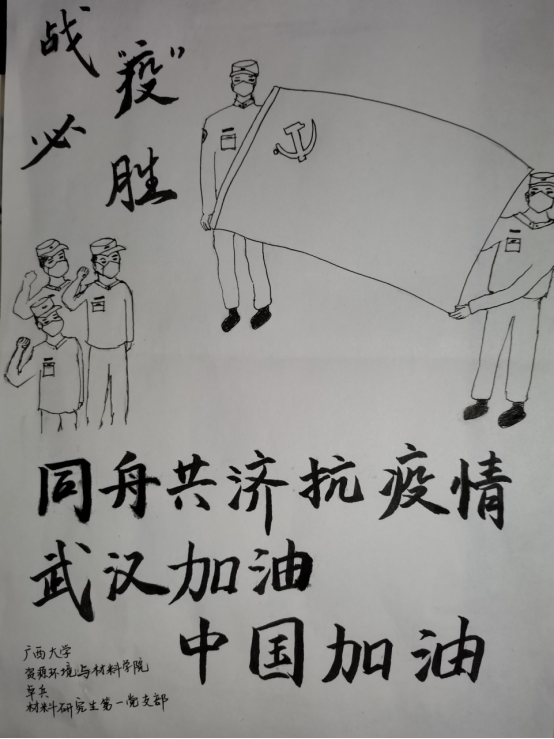 战“疫”
必胜
同舟共济抗疫情
武汉加油
中国加油
广西大学
资源环境与材料学院
材料研究生第一党支部